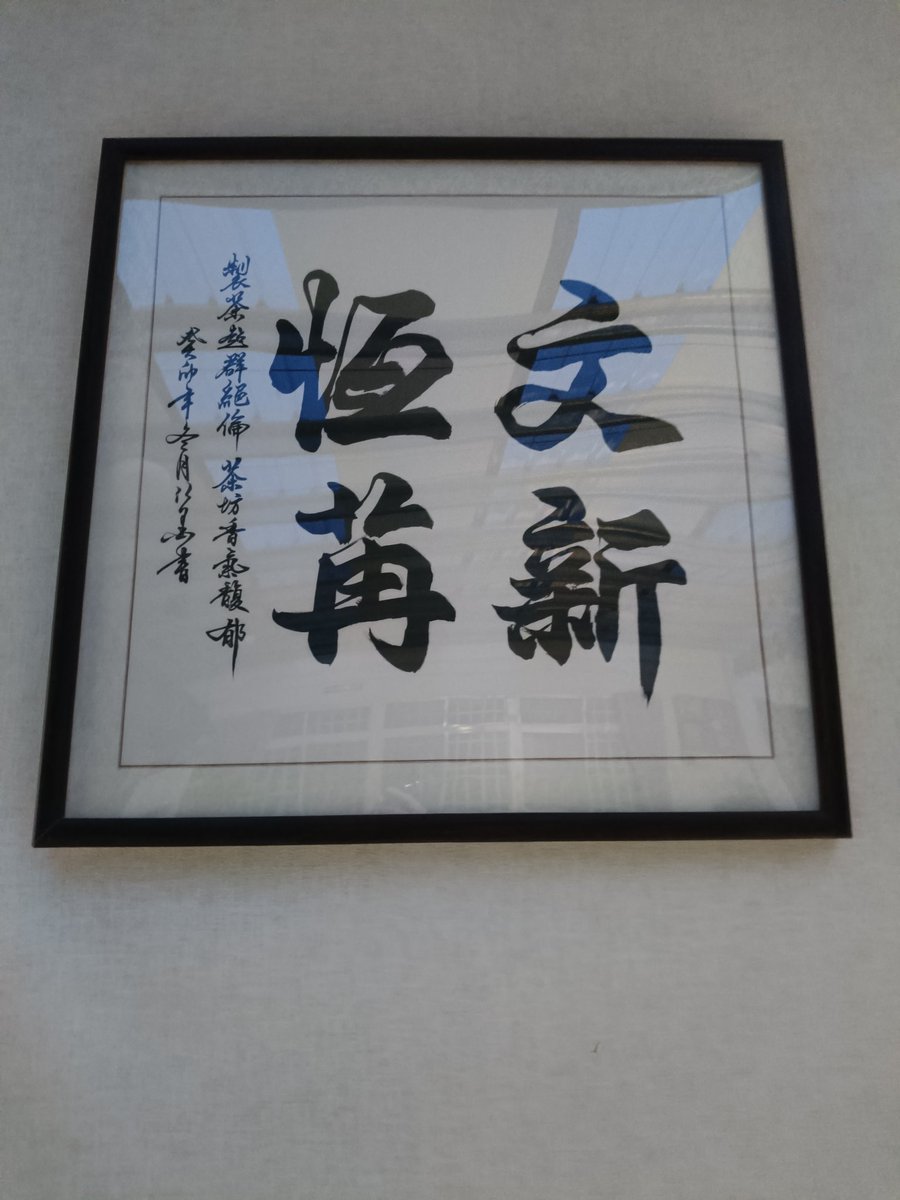 文新
恒苒
製茶超群絕倫 茶坊香氣馥郁
癸卯年冬月 書